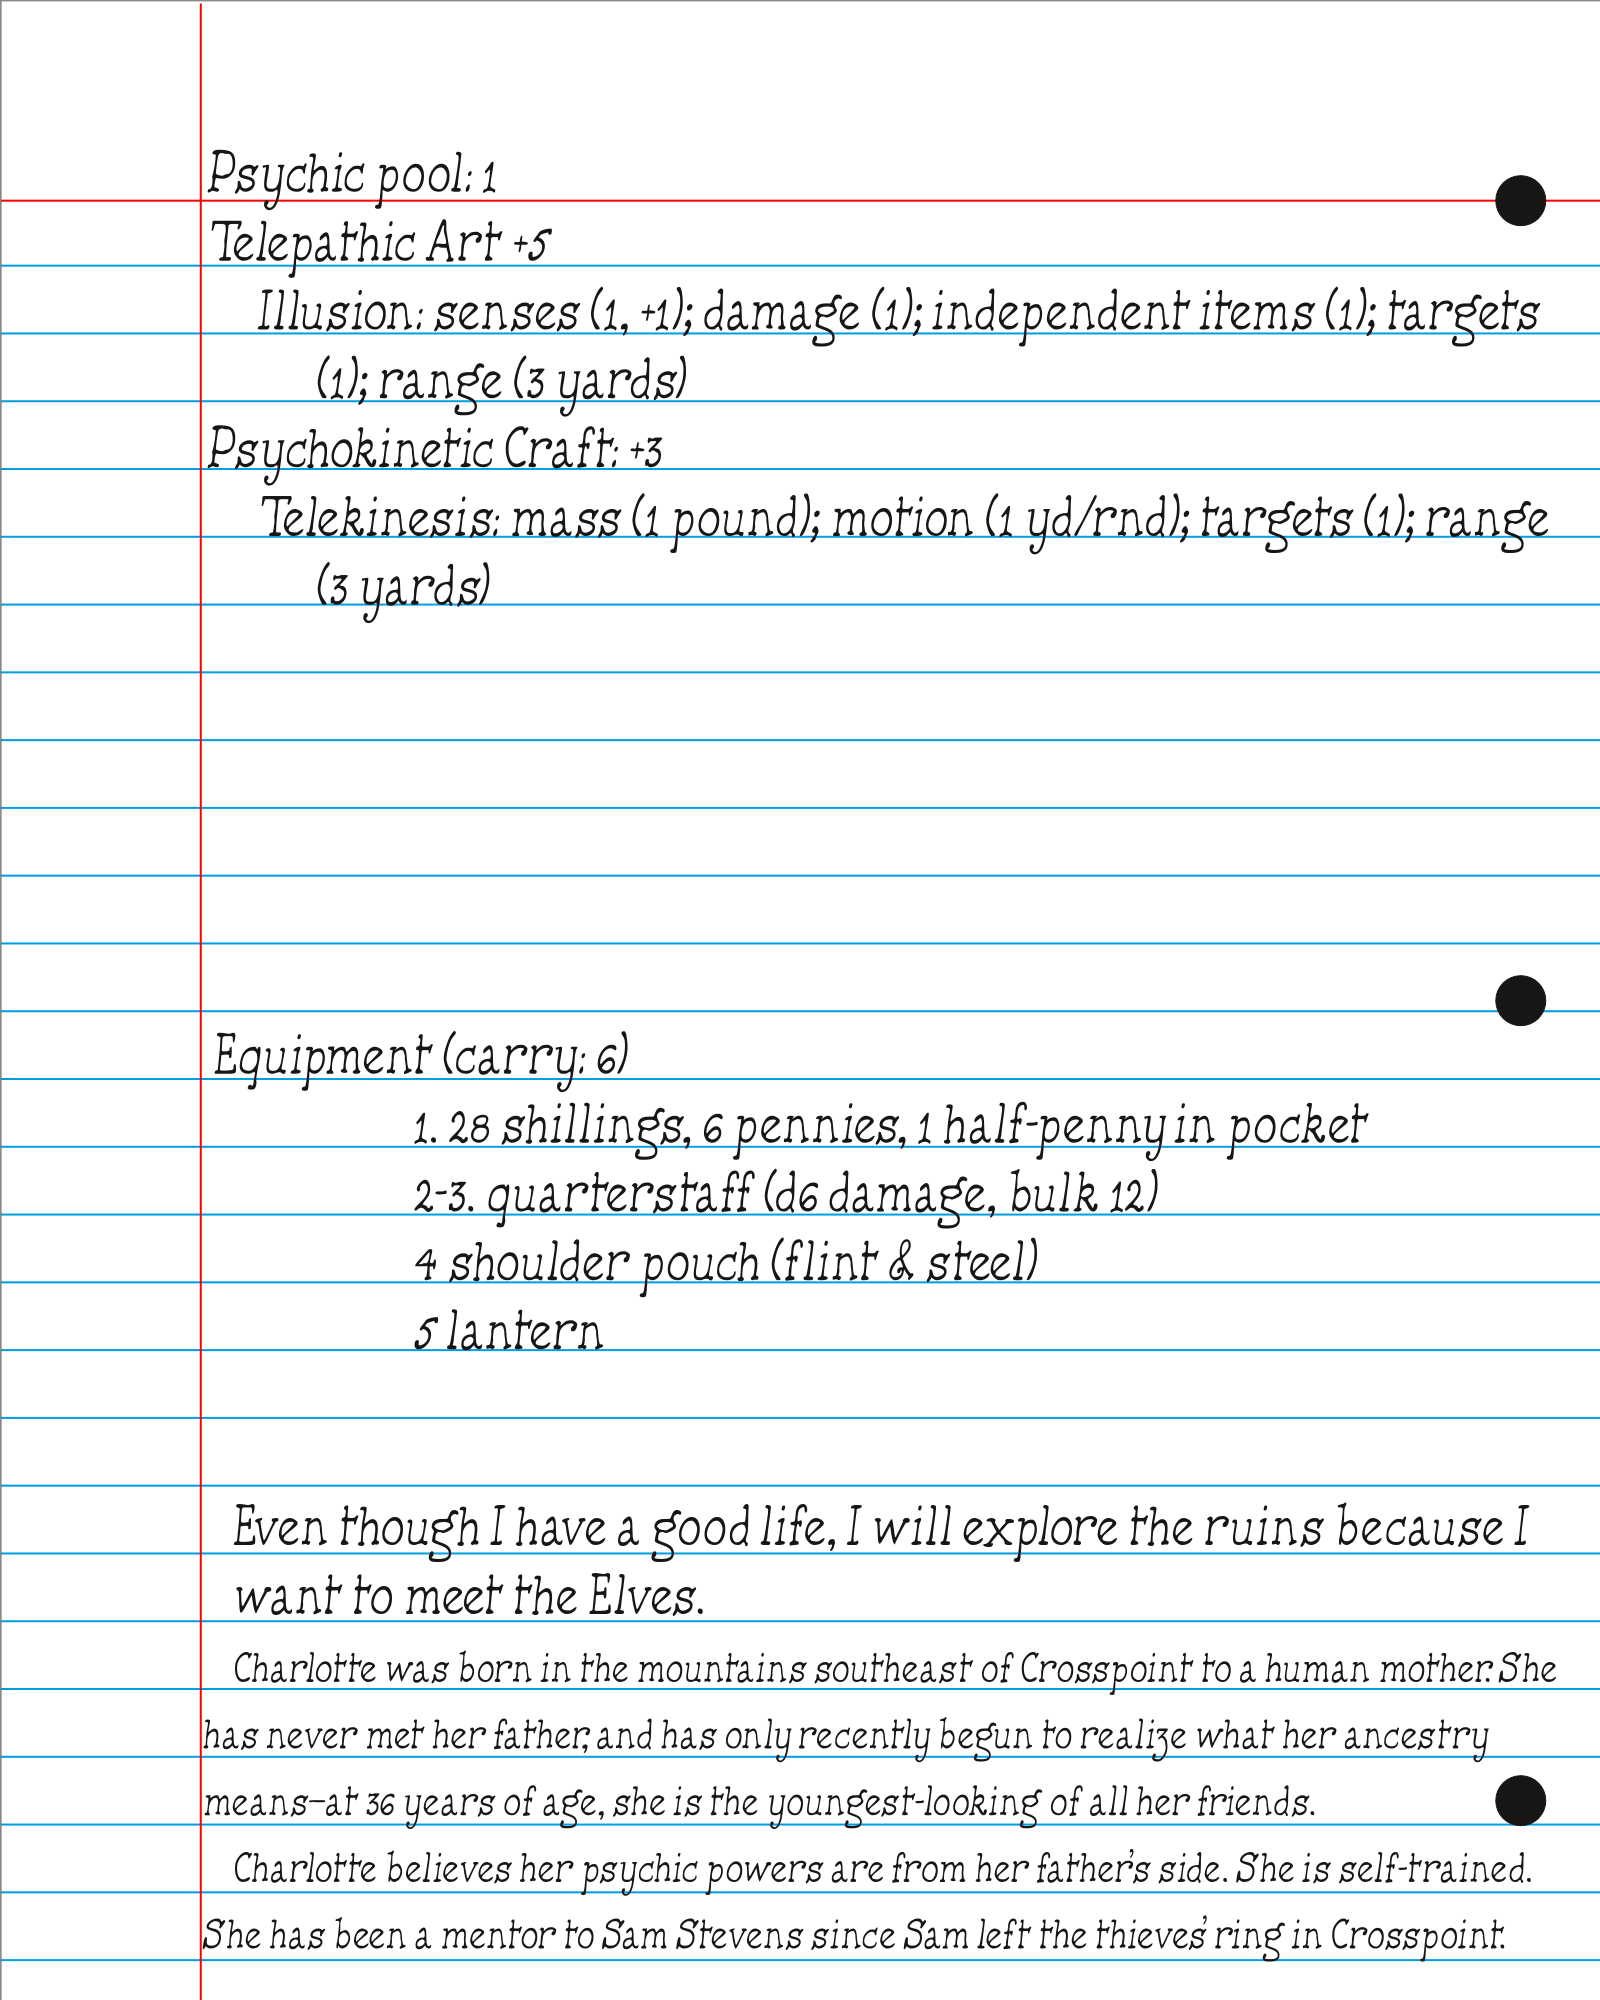 Psychic pool: 1
Telepathic Art +5
Illusion: senses (1, +1); damage (1); independent items (1); targets
(1); range (3 yards)
Psychokinetic Craft: +3
Telekinesis: mass (1 pound); motion (1 yd/rnd); targets (1); range
(3 yards)
Equipment (carry: 6)
1. 28 shillings, 6 pennies, 1 half-penny in pocket
2-3. quarterstaff (d6 damage, bulk 12)
4 shoulder pouch (flint & steel)
5 lantern
Even though I have a good life, I will explore the ruins because I
want to meet the Elves.
Charlotte was born in the mountains southeast of Crosspoint to a human mother. She
has never met her father, and has only recently begun to realize what her ancestry
means—at 36 years of age, she is the youngest-looking of all her friends.
Charlotte believes her psychic powers are from her father’s side. She is self-trained.
She has been a mentor to Sam Stevens since Sam left the thieves’ ring in Crosspoint.